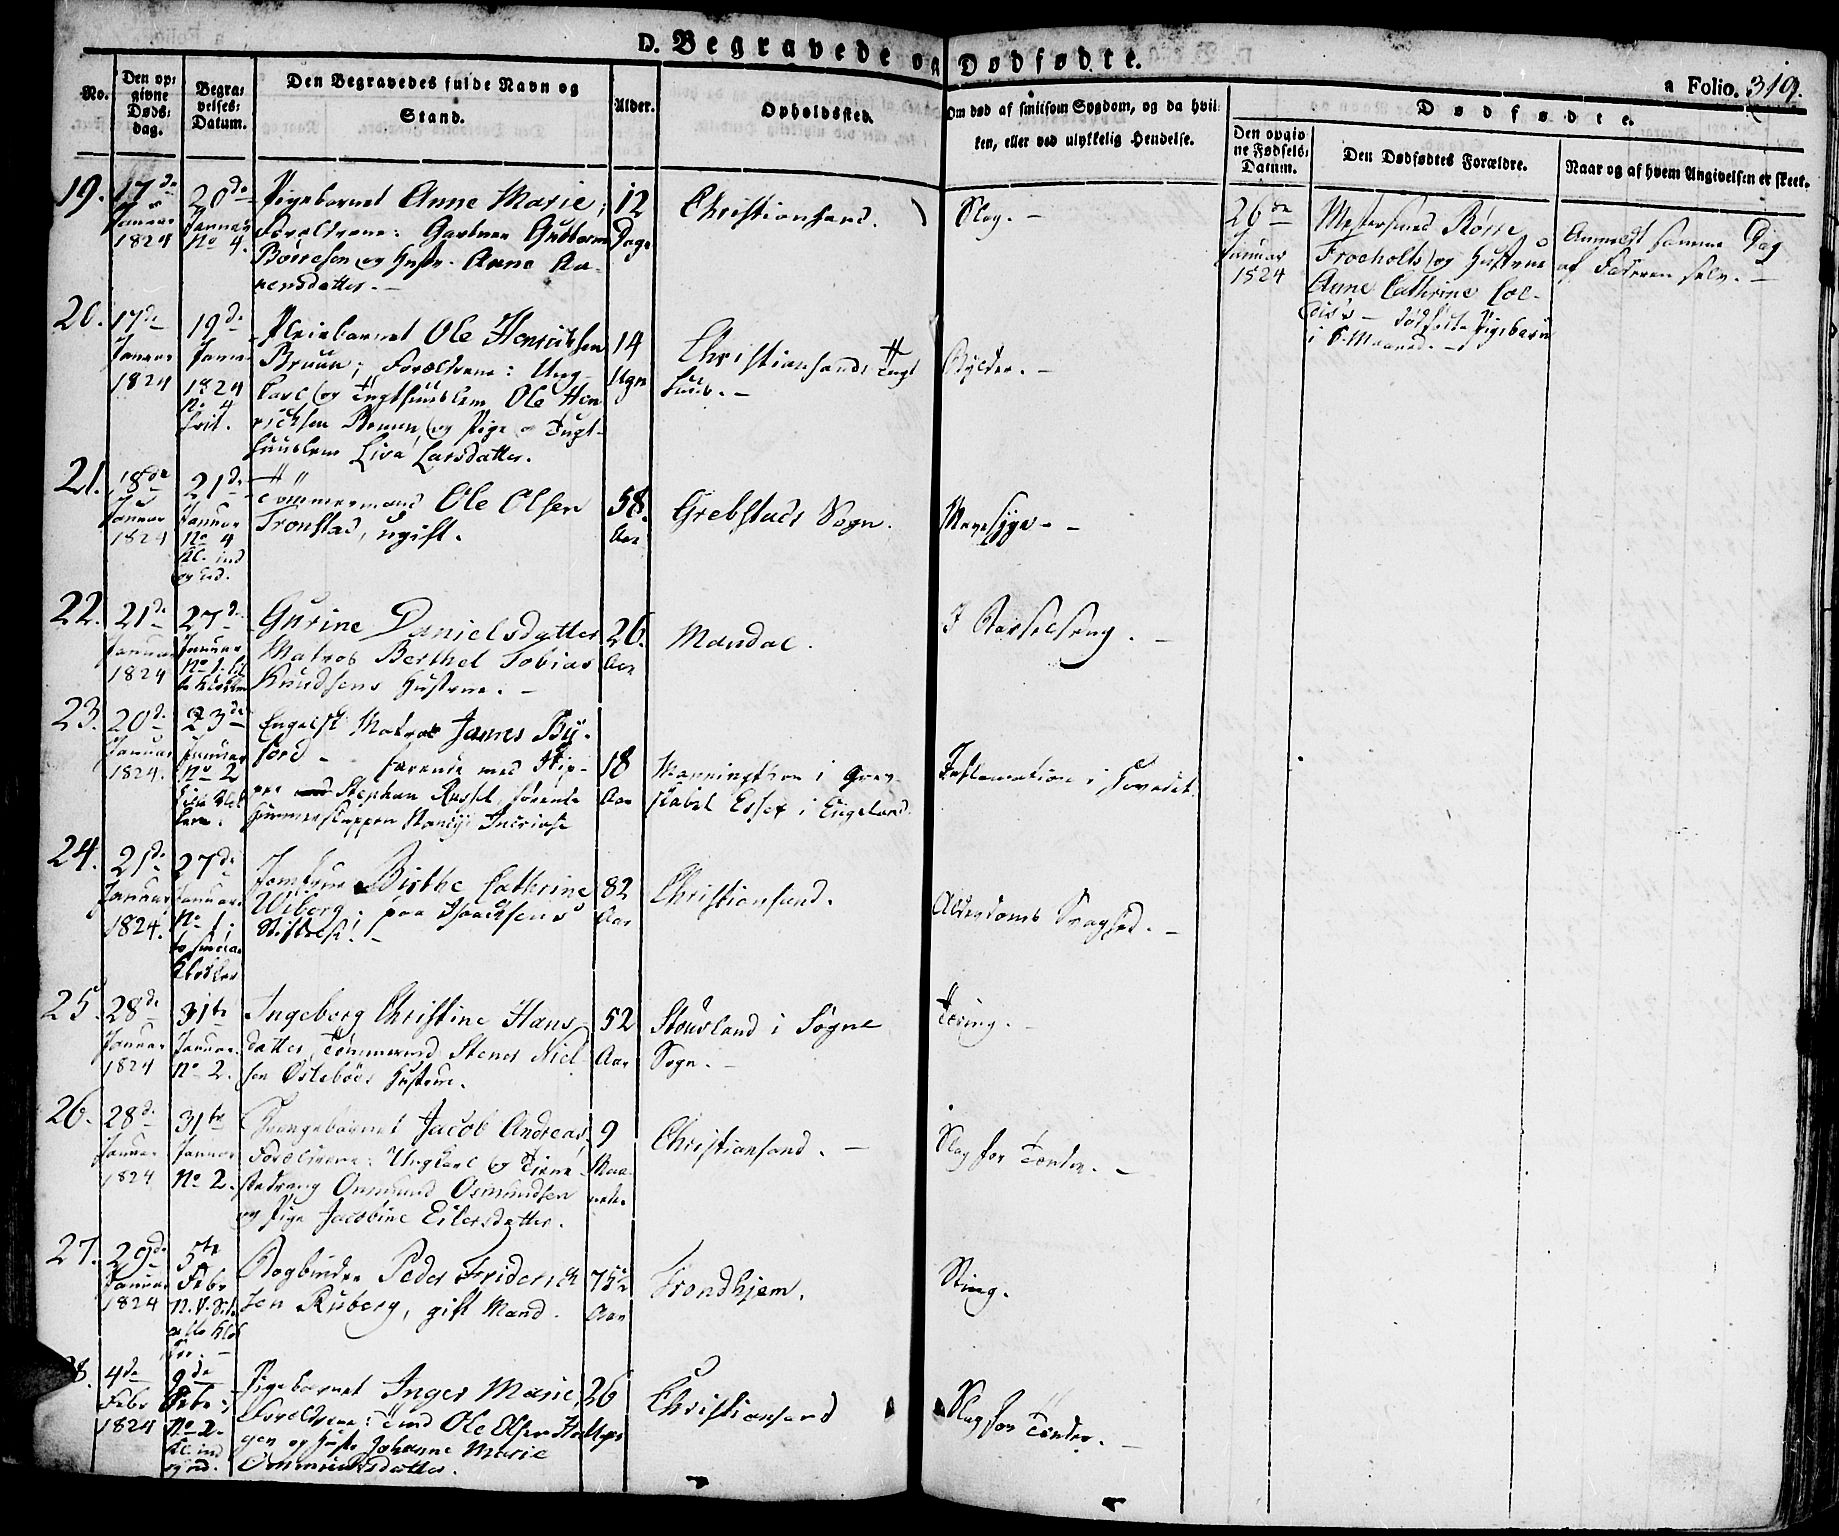 D. Begravede og Dødfødte.
a Folio. 319.
No.
Den op:
givne
Døds:
dag.
Begra:
velses:
Datum.
Den Begravedes fulde Navn og
Stand.
Alder.
Opholdssted.
Om død af smitsom Sygdom, og da hvil:
ken, eller ved ulykkelig Hendelse.
Dødfødte.
Den opgiv
ne Fødsels:
Datum.
Den Dødfødtes Forældre.
Naar og af hvem Angivelsen er skeet.
19.
17de
Januar
1824
20de
Januar
No 4.
Pigebarnet Anne Marie;
Forældrene: Gartner Guttorm
Börresen og Hustr. Anne Aa-
nensdatter. -
12
Dage
Christiansand.
Slag. -
26de
Januar
1824
Mestersmed Börre
Froeholt og Hustrue
Anne Cathrine
dødfødte Pigebarn
i 8 Maaned. -
Anmeldt samme Dag
af Faderen selv. -
20.
17de
Januar
1824
19de
Januar
1824
No 4
frit.
Pleiebarnet Ole Henrichsen
Bruun; Forældrene: Ung-
karl og Tugthuuslem Ole Hen
richsen Bruun og Pige o Tugt-
huuslem Live Larsdatter.
14
Uger
Christiansands Tugt
huus. -
Bylder. -
21.
18de
Januar
1824
21de
Januar
No 4
Kl. ind
og ud.
Tömmermand Ole Olsen
Tronstad, ugift.
58.
Aar
Grebstads Sogn.
Mavesyge. -
22.
21de
Januar
1824
27de
Januar
No 1.
Gurine Danielsdatter
Matros Berthel Tobias
Knudsens Hustrue. -
26.
Aar
Mandal.
I Barselseng. -
23.
20de
Januar
1824.
23de
Januar
No 2
Engelsk Matros James By-
ford - farende med Skip-
per Stephan Russel, förende
18
Aar
Manningthree i Grev-
skabet Essex i Engeland.
Inflamation i Hovedet.
24.
21de
Januar
1824.
27de
Januar
No 1.
Jomfrue Birthe Cathrine
Wiborg; paa Isaachsens
Stiftelse! -
82
Aar
Christiansand.
Alderdoms Svaghed. -
25.
28de
Januar
1824
31te
Januar
No 2.
Ingeborg Christine Hans
datter, Tömmermd Stener Niel-
sen Östeböes Hustrue.
52
Aar
Stousland i Sögne
Sogn. -
Tæring. -
26.
28de
Januar
1824
31te
Januar
No 2.
Drengebarnet Jacob Andreas,
Forældrene: Ungkarl og Tiene-
stedreng Onmund Osmundsen
og Pige Jacobine Eilersdatter.
9
Maa-
neder
Christiansand. -
Slag for Tænder. -
27.
29de
Januar
1824
5te
Febr
Bogbinder Peder Friderich
sen Ruberg, gift Mand.
75½
Aar
Trondhjem.
Sting.
28.
4de
Febr
1824
9de
Febr.
No 2.
Kl. ind
og ud.
Pigebarnet Inger Marie,
Forældrene: Ole Olsen
gen og Hustr. Johanne Marie
26
Uger
Christiansand
Slag for Tænder. -